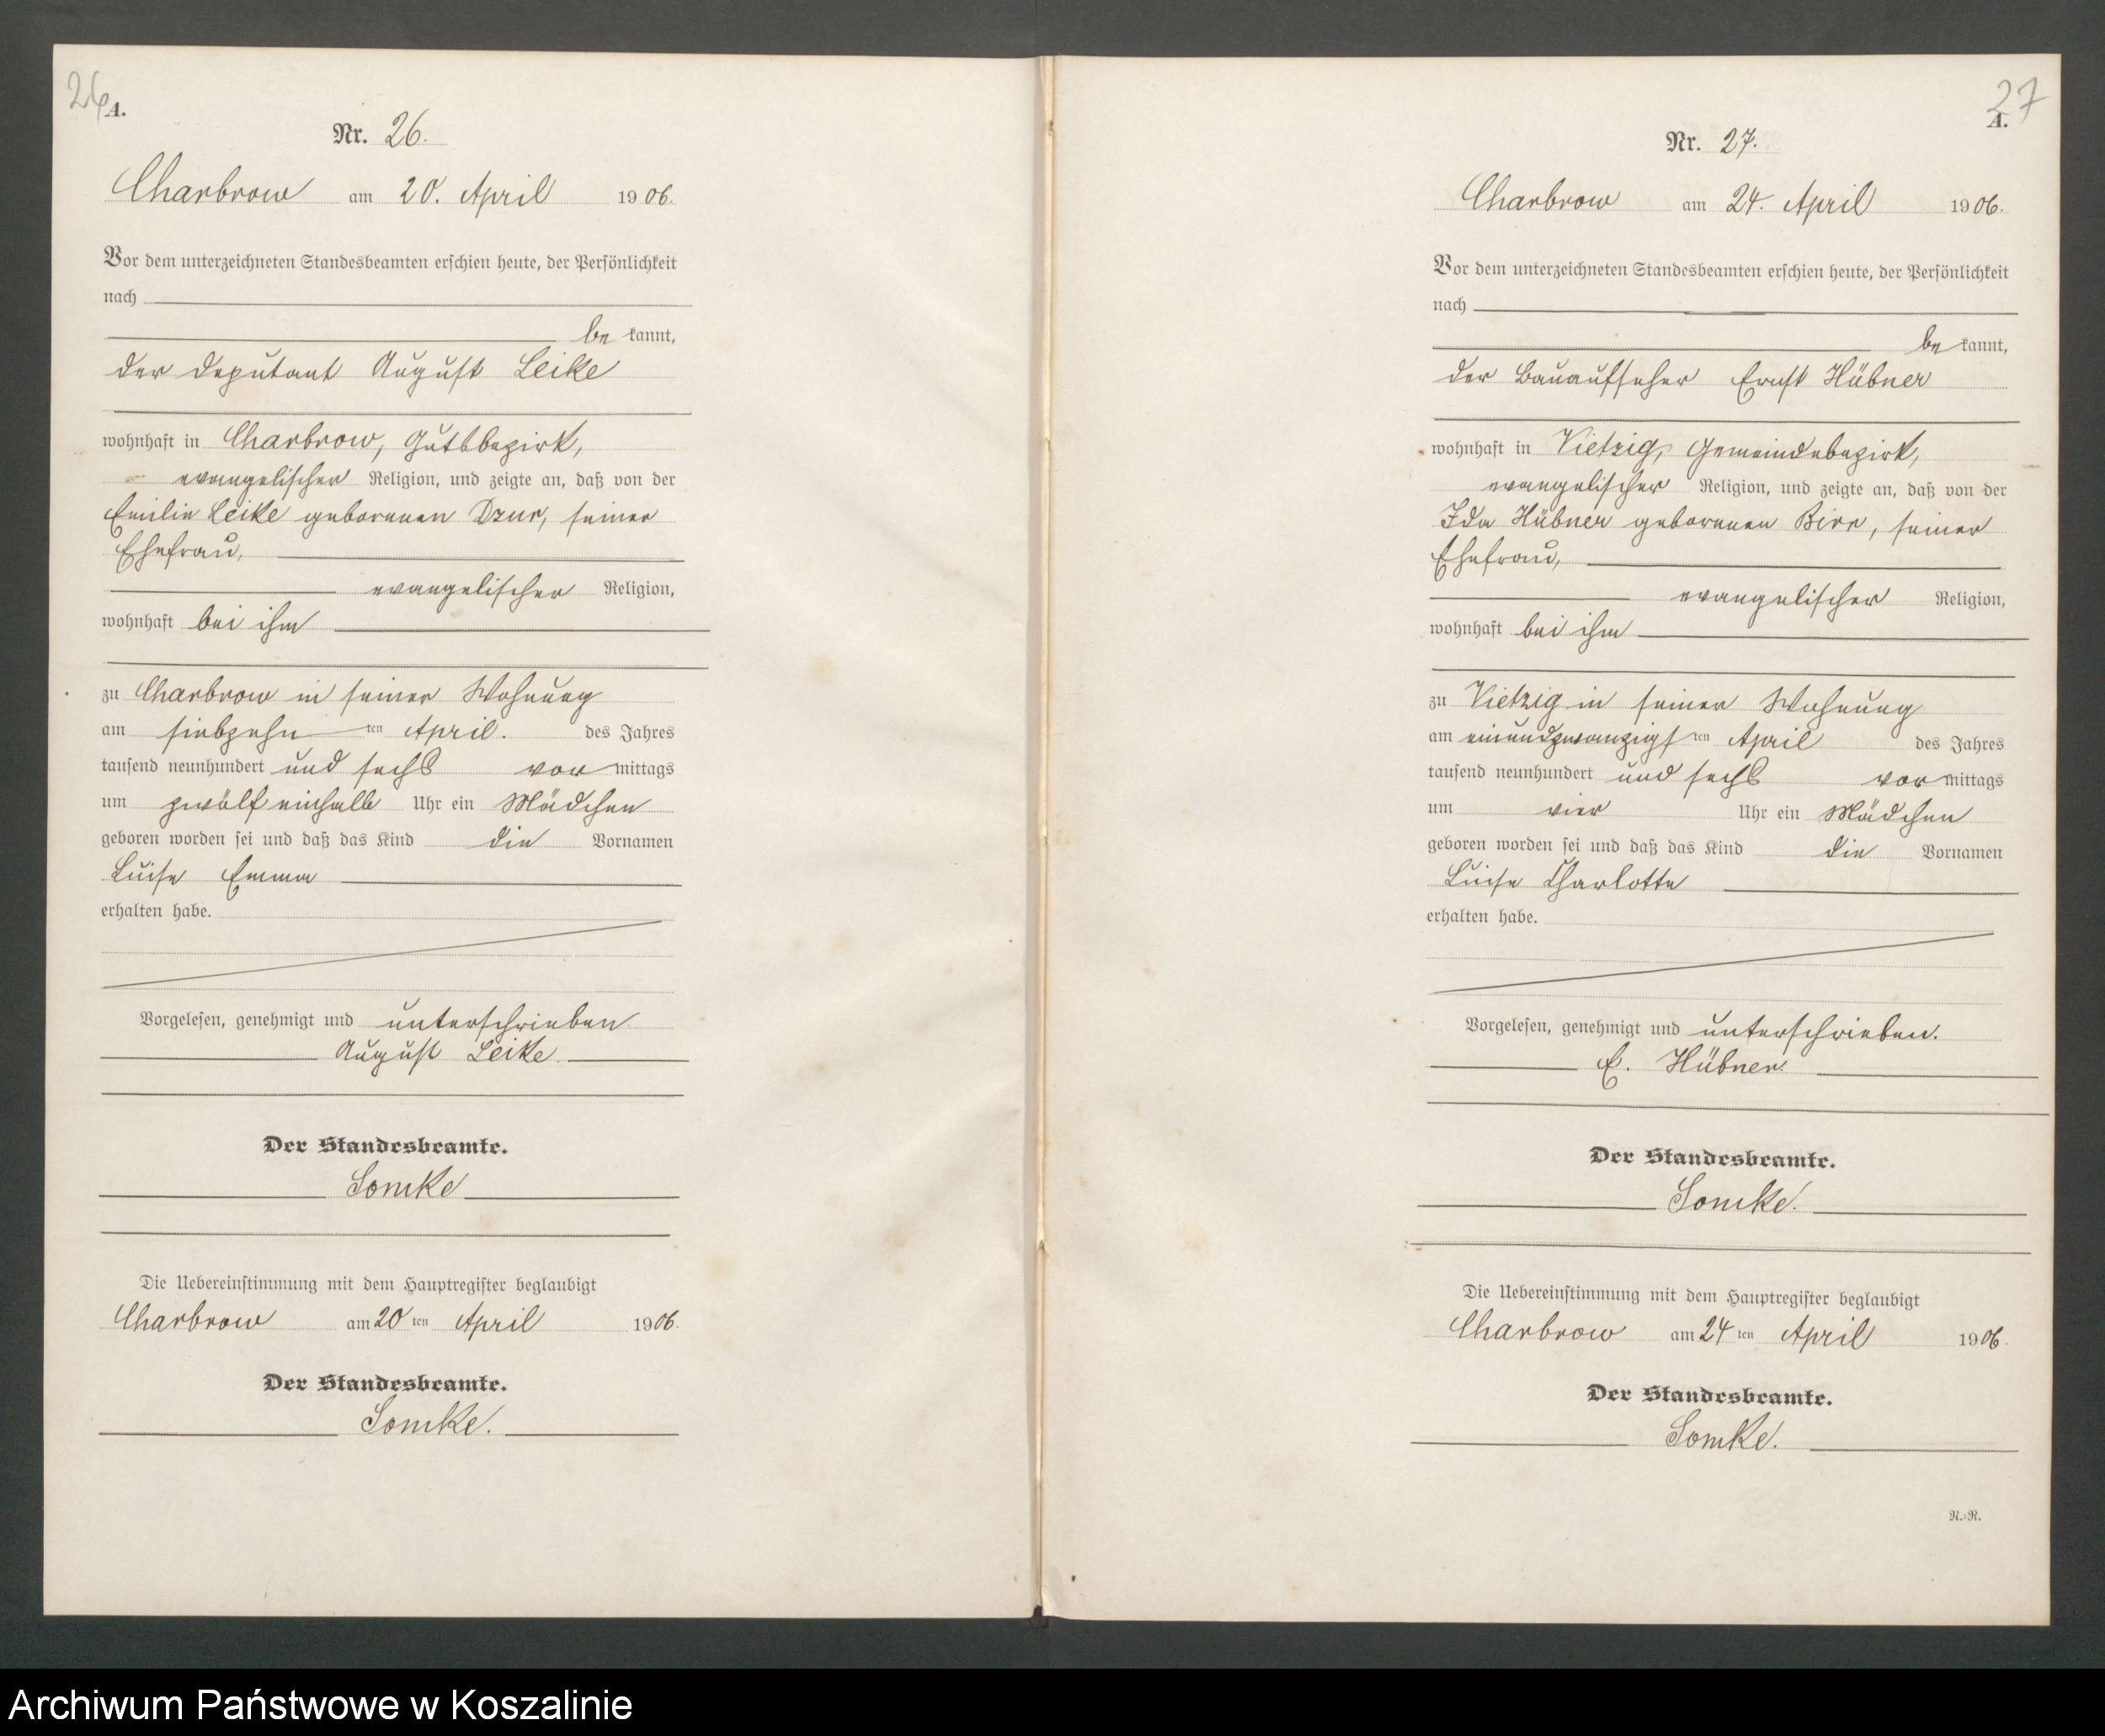 26
A.
Nr. 26.
Charbrow am 20. April 1906.
Vor dem unterzeichneten Standesbeamten erschien heute, der Persönlichkeit
nach
be kannt,
der Deputant August Leike
wohnhaft in Charbrow, Gutsbezirk,
evangelischer Religion, und zeigte an, daß von der
Emilie Leike geborenen Dzur, seiner
Ehefrau,
evangelischer Religion,
wohnhaft bei ihm
zu Charbrow in seiner Wohnung
am siebzehn ten April. des Jahres
tausend neunhundert und sechs vor mittags
um zwölf einhalb Uhr ein Mädchen
geboren worden sei und daß das Kind die Vornamen
Luise Emma
erhalten habe.
Vorgelesen, genehmigt und unterschrieben
August Leike.
Der Standesbeamte.
Somke
Die Uebereinstimmung mit dem Hauptregister beglaubigt
Charbrow am 20 ten April 1906.
Der Standesbeamte.
Somke.
27
A.
Nr. 27.
Charbrow am 24. April 1906.
Vor dem unterzeichneten Standesbeamten erschien heute, der Persönlichkeit
nach
be kannt,
der Bauaufseher Ernst Hübner
wohnhaft in Vietzig, Gemeindebezirk,
evangelischer Religion, und zeigte an, daß von der
Ida Hübner geborenen Birr, seiner
Ehefrau,
evangelischer Religion,
wohnhaft bei ihm
zu Vietzig in seiner Wohnung
am einundzwanzigs ten April des Jahres
tausend neunhundert und sechs vor mittags
um vier Uhr ein Mädchen
geboren worden sei und daß das Kind die Vornamen
Luise Charlotte
erhalten habe.
Vorgelesen, genehmigt und unterschrieben.
E. Hübner.
Der Standesbeamte.
Somke.
Die Uebereinstimmung mit dem Hauptregister beglaubigt
Charbrow am 24 ten April 1906.
Der Standesbeamte.
Somke.
N.=R.
Archiwum Państwowe w Koszalinie